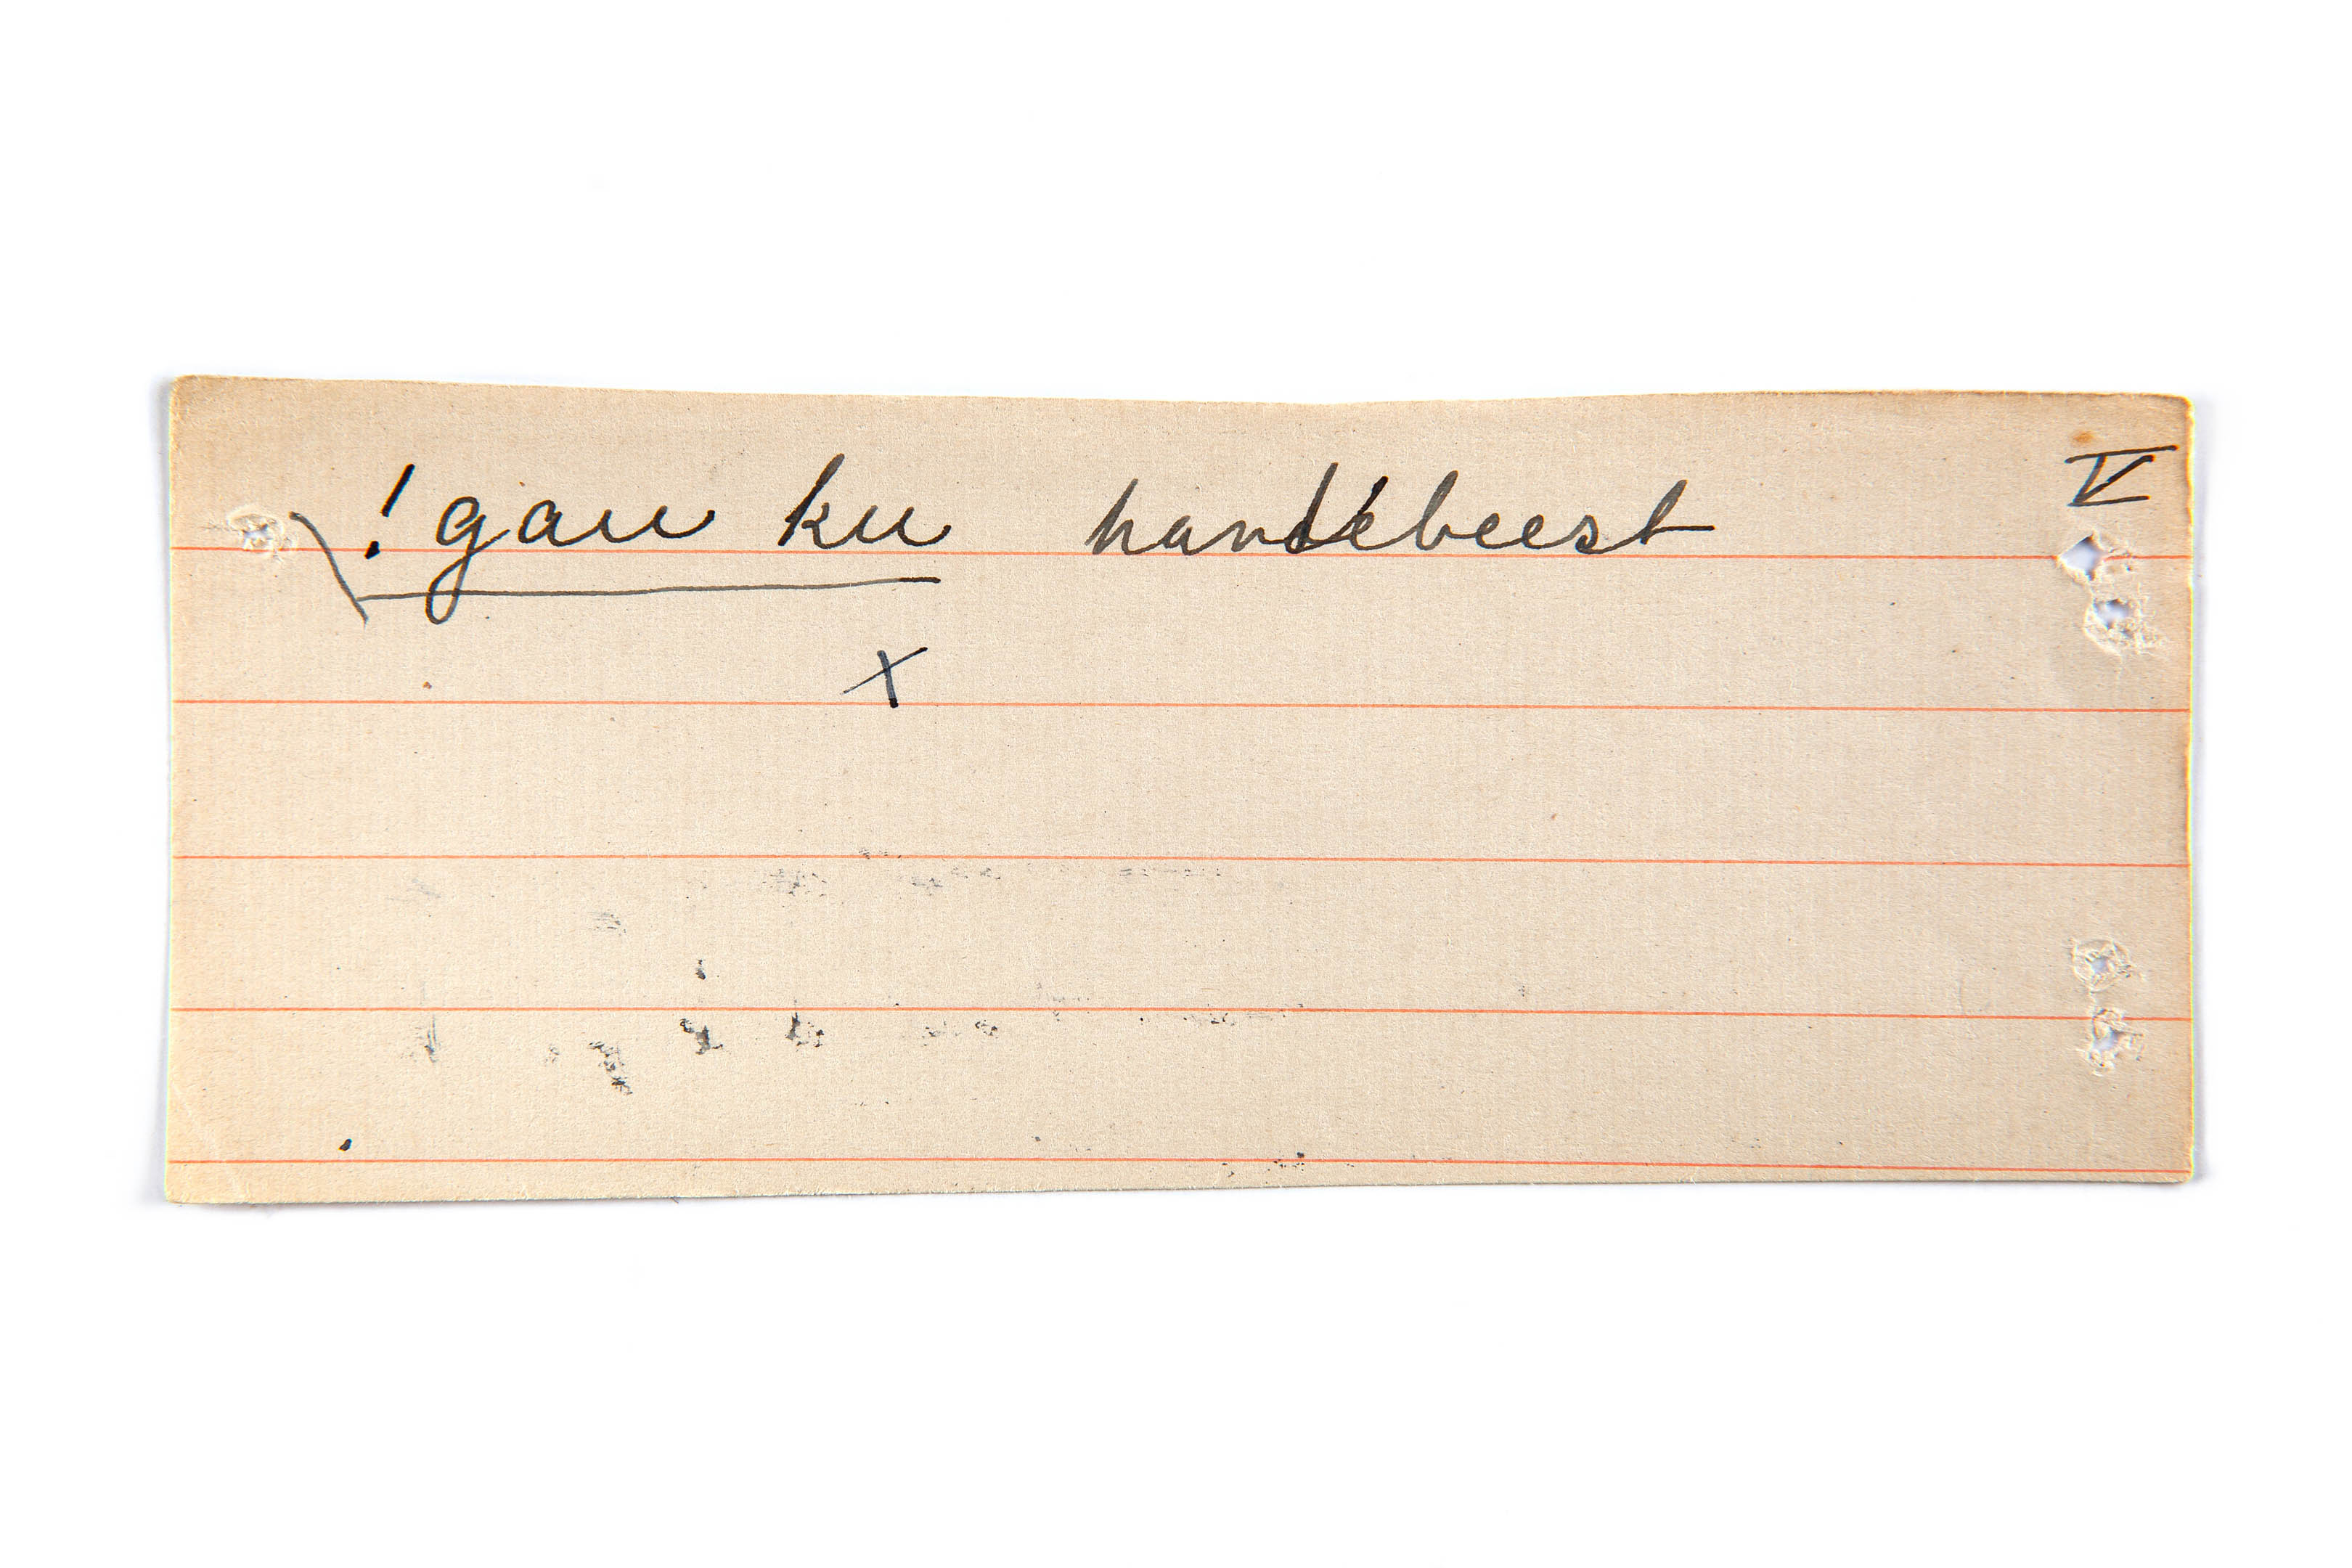 ! gau ku hartebeest V
x